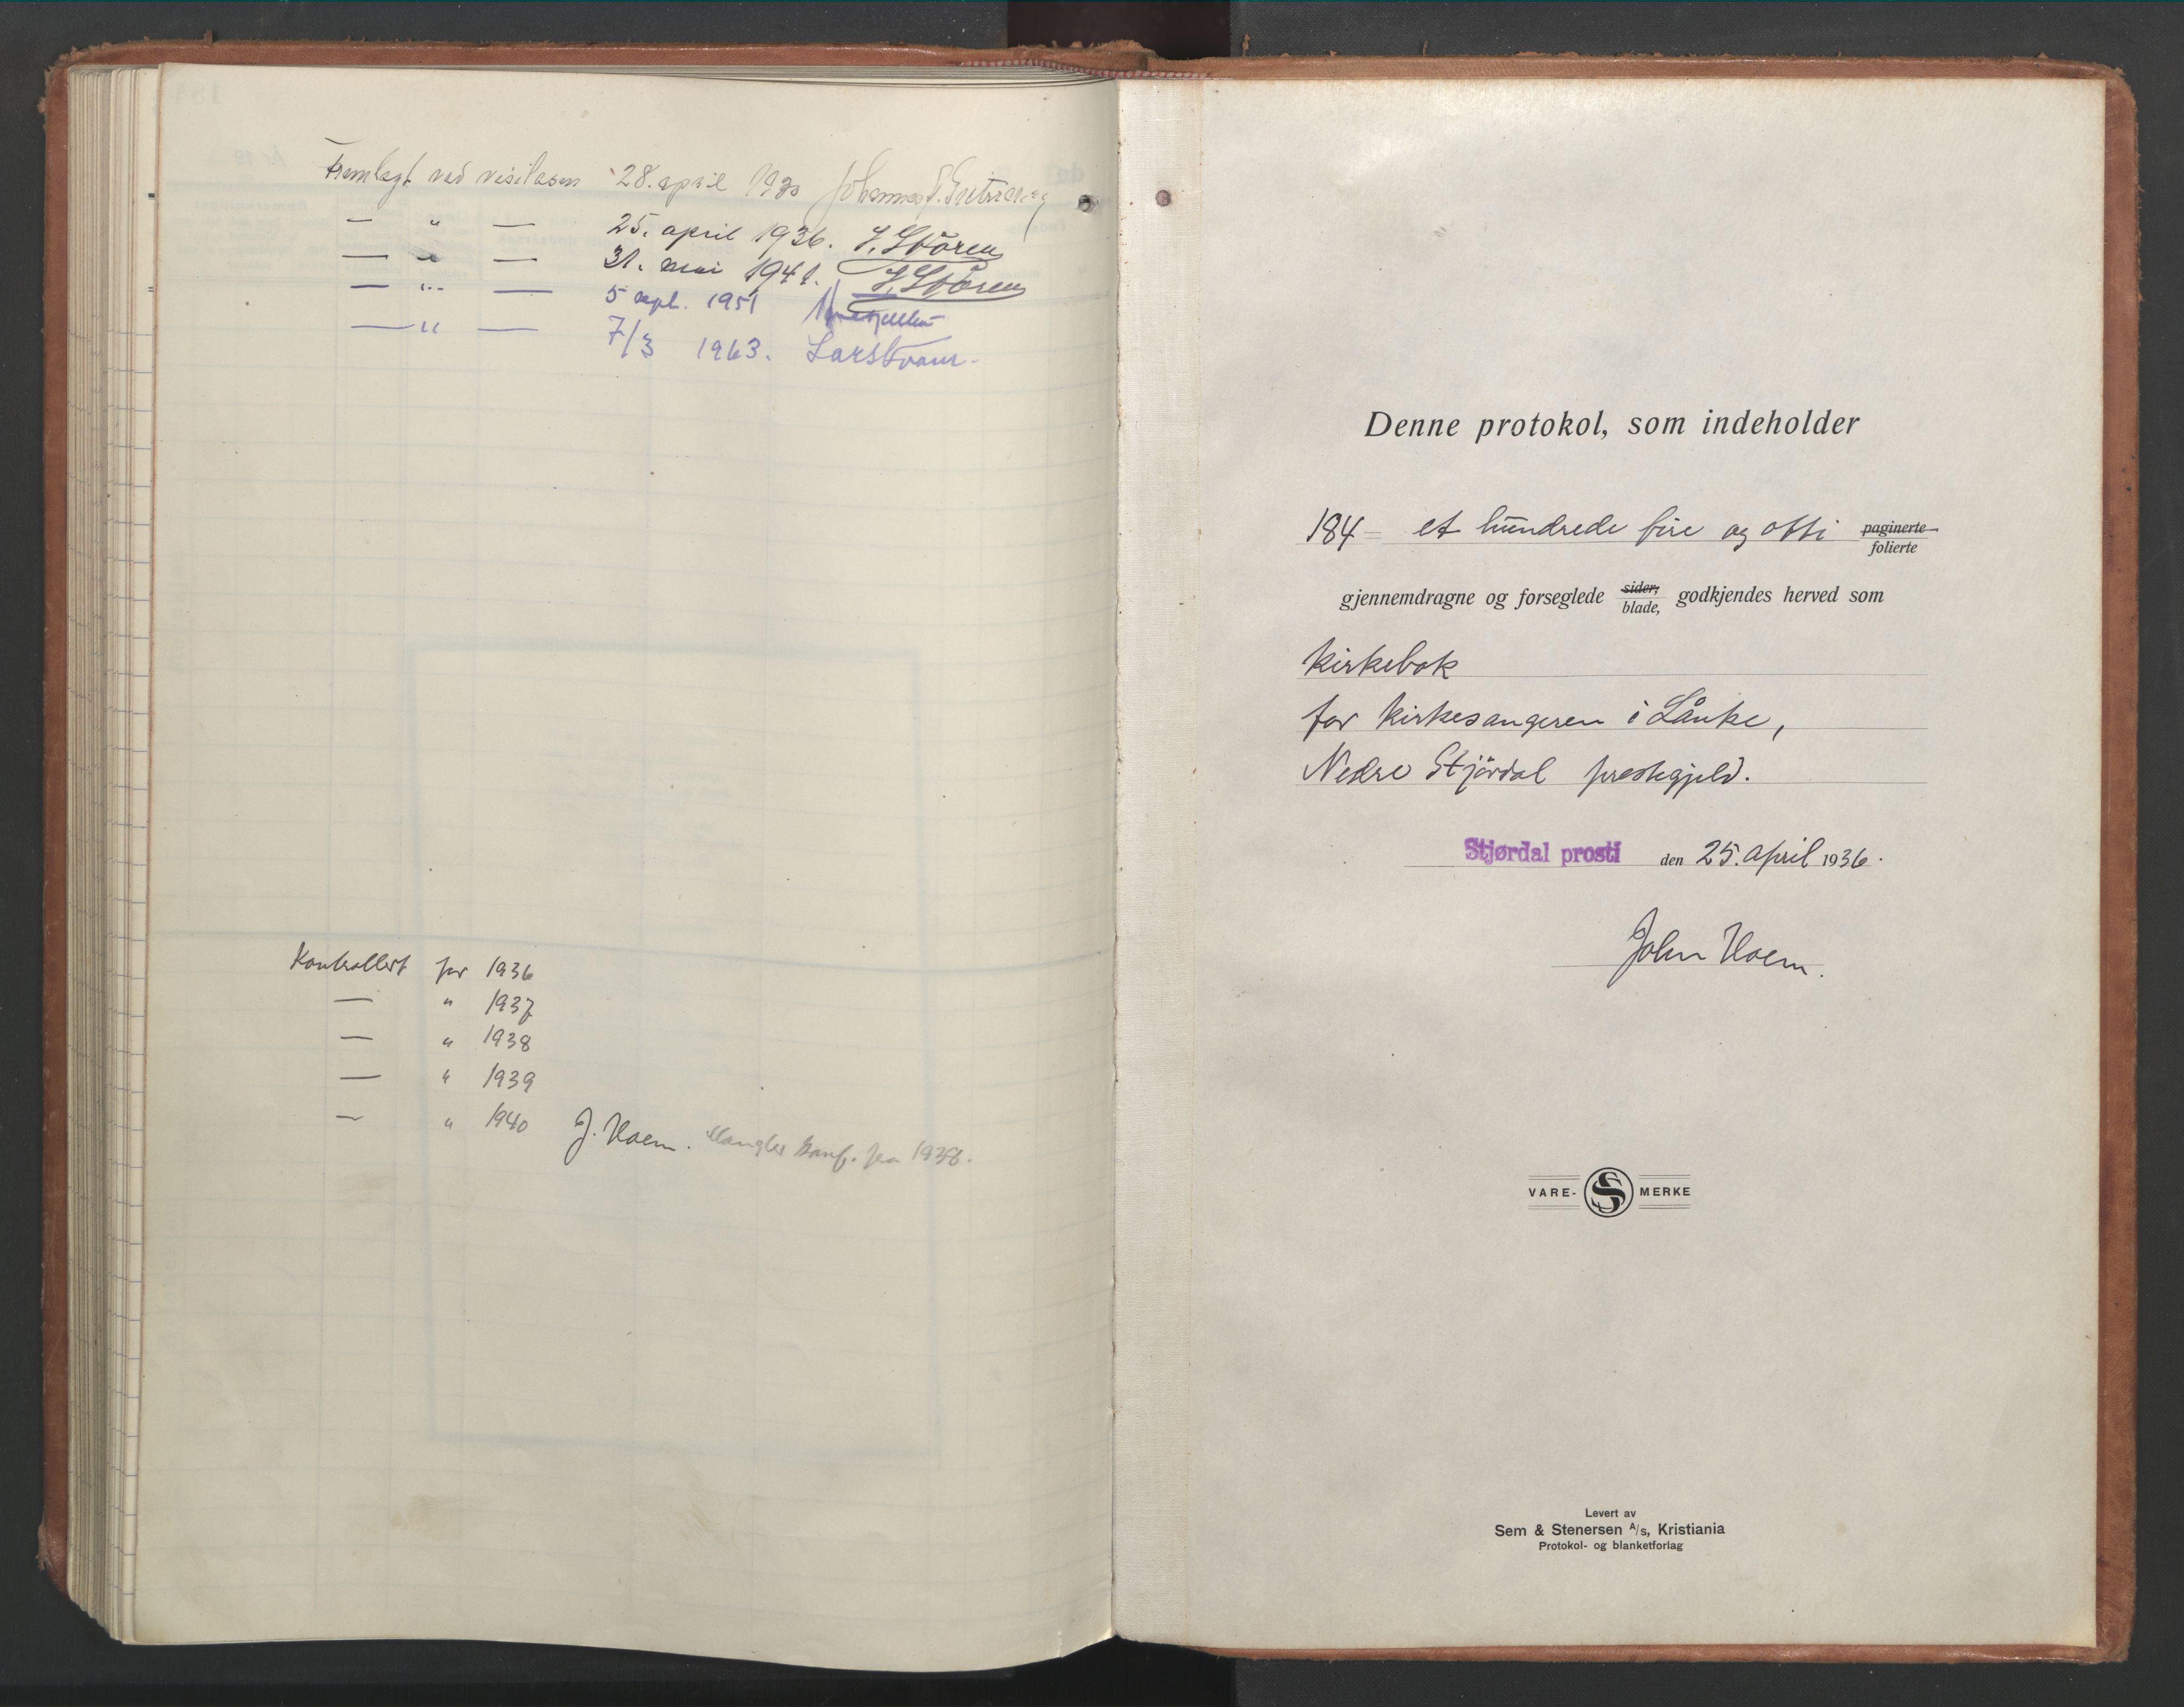 Fremlagt ved visitasen 28. april 1930 Johannes
— " — 25. april 1936. J. Støren
— " — 31. mai 1941. J. Støren
— " — 5 sept. 1951
— " — 7/3 1963.
Kontrollert for 1936
— " 1937
— " 1938
— " 1939
— " 1940 J. Hoem. Mangler konf. for 1938.
Denne protokol, som indeholder
184 = et hundrede fire og otti paginerte
folierte
gjennemdragne og forseglede sider, godkjendes herved som
blade,
kirkebok
for kirkesangeren i Lånke,
Nedre Stjördal prestegjeld.
Stjørdal prosti den 25. april 1936.
John Hoem.
VARE- SS MERKE
Levert av
Sem & Stenersen A/s, Kristiania
Protokol- og blanketforlag